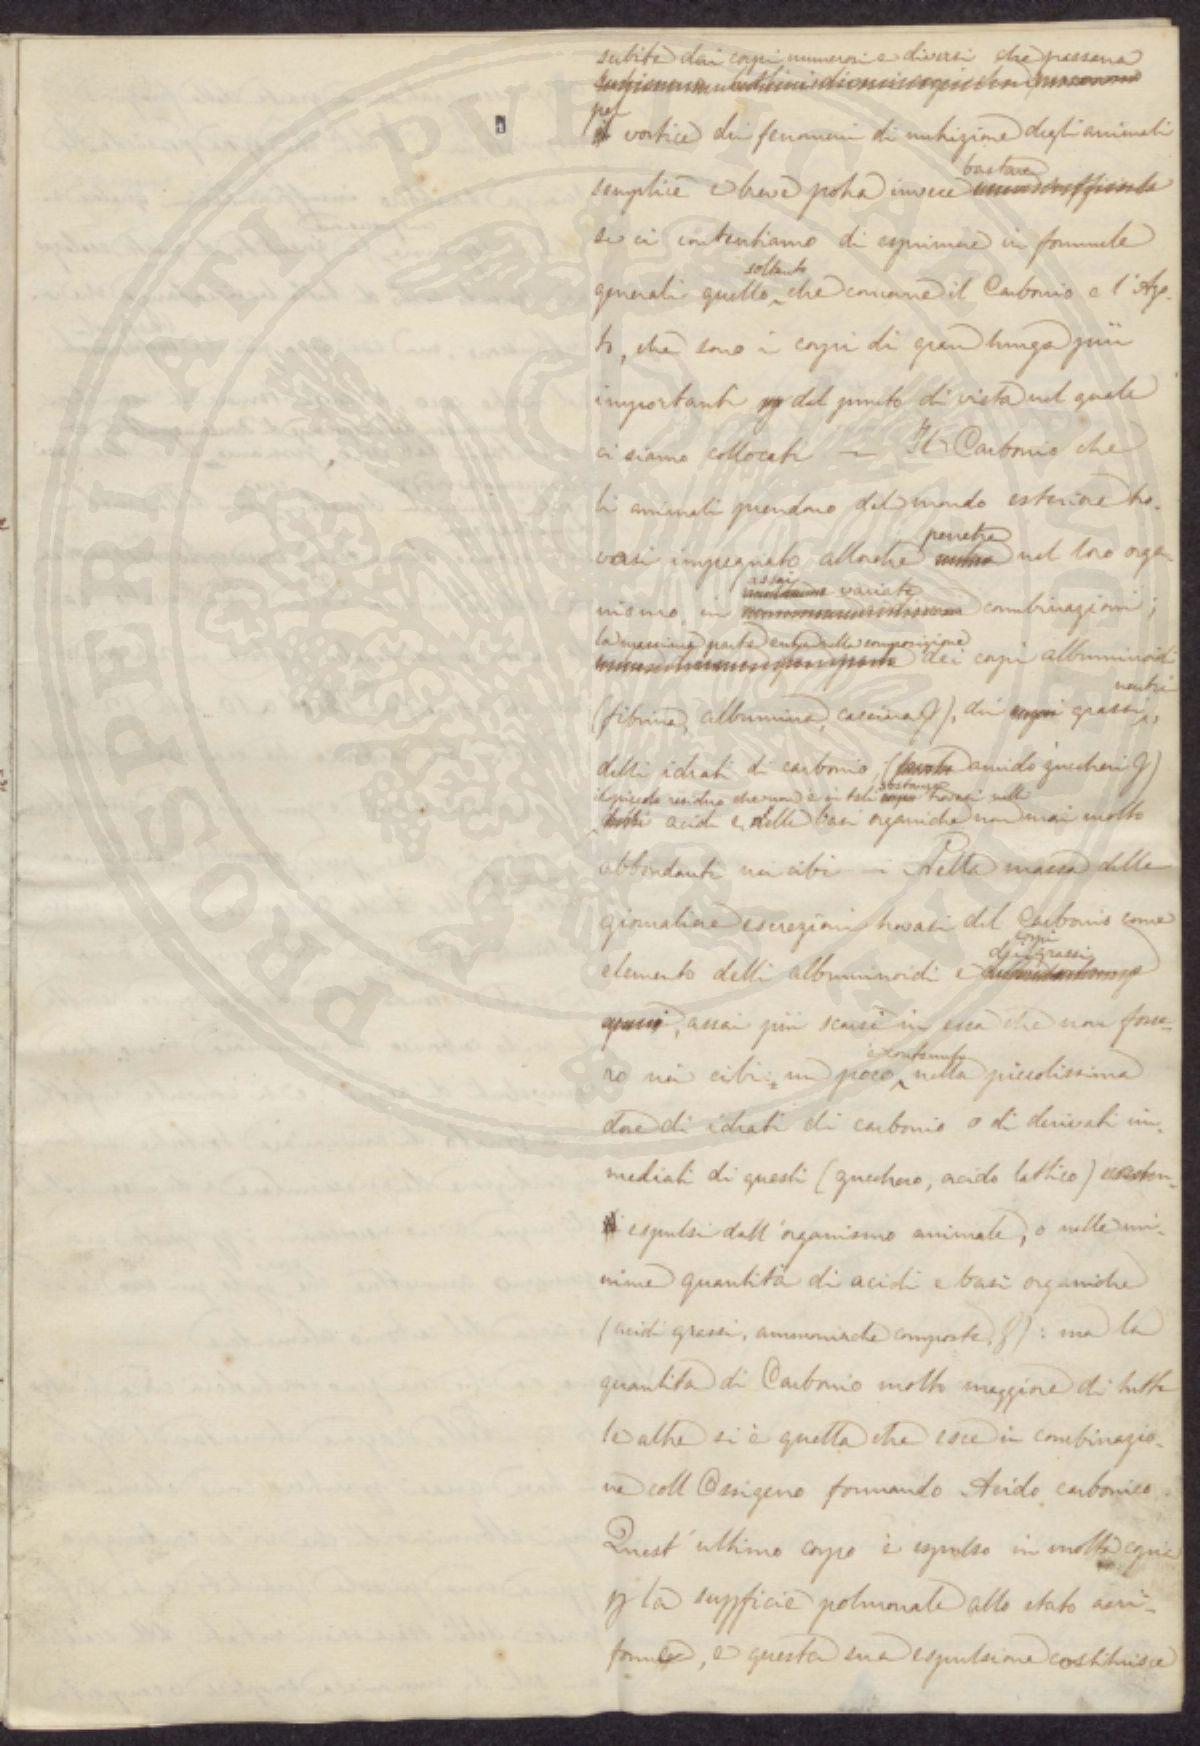 subite dai corpi numerosi e diversi che passano
pel
vortice dei fenomeni di nutrizione degli animali
bastare
semplice e breve potrà invece
se ci contentiamo di esprimere in formule
soltanto
generali quello che concerne il Carbonio e l'Azo-
to, che sono i corpi di gran lunga più
importanti dal punto di vista nel quale
ci siamo collocati — Il Carbonio che
li animali prendono dal mondo esteriore tro-
penetra
vasi impegnato allorchè nel loro orga-
assai
variate
nismo in combinazioni;
la massima parte entra nella composizione
dei corpi albuminoidi
neutri
(fibrina, albumina, caseina), dei grassi,
delli idrati di carbonio, (amido zuccheri)
sostanze
il piccolo residuo che non è in tali trovasi nelli
acidi e nelle basi organiche non mai molto
abbondanti nei cibi — Nella massa delle
giornaliere escrezioni trovasi del Carbonio come
corpi
dei grassi
elemento delli albuminoidi e
, assai più scarsi in essa che non fosse-
ro nei cibi: un poco è contenuto nella piccolissima
dose di idrati di carbonio o di derivati im-
mediati di questi (zucchero, acido lattico)
espulsi dall'organismo animale, o nelle mi-
nime quantità di acidi e basi organiche
(acidi grassi, ammoniache composte,): ma la
quantità di Carbonio molto maggiore di tutte
le altre si è quella che esce in combinazio-
ne coll Ossigeno formando Acido carbonico.
Quest'ultimo corpo è espulso in molta copia
p la suppficie polmonale allo stato aeri-
forme, e questa sua espulsione costituisce
PROSPERITATI PVBLICAE